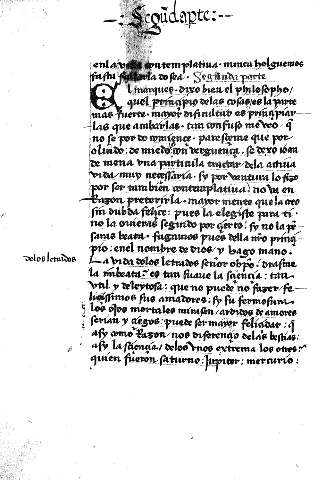 Segu̅da p̲te
en la vida contemplativa. nunca holguemos
fasta fallarla do sea. Segunda parte
El marques. dixo bien el philosopho/
quel principio delas cosas/es la parte
mas fuerte. mayor dificultad es prinçipiar
las que acabarlas. tan confuso me veo. q̅
no se por do comience. paresçeme que por
olvido. de miedo. o su verguença. se dexo iohan
de mena una particula tractar dela activa
vida muy necessaria. sy por ventura lo fizo
por ser tambien contemplativa/ no va en
Razon preterirla. mayor mente que la creo
sin dubda felice: pues la elegiste para ti.
no la oviera segundo por çierto. sy no la pe
saras beata. sigamos pues della n̅ro prinçi
pio. en el nombre de dios. y hago mano.
La vida delos letrados señor obp̅o. dirasme
la inbeata: es tan suave la sçiençia: tan
util y deleytosa: que no puede no fazer fe
liçissimos sus amadores: sy su fermosura
los ojos mortales mirasen. ardidos de amores
serian y çiegos: puede ser mayor felicidad: q̅
asy como Razon nos diferençio delas bestias:
asy la sçiençia/ delos unos extrema los otros:
quien fueron saturno: Jupiter: mercurio:
delos letrados